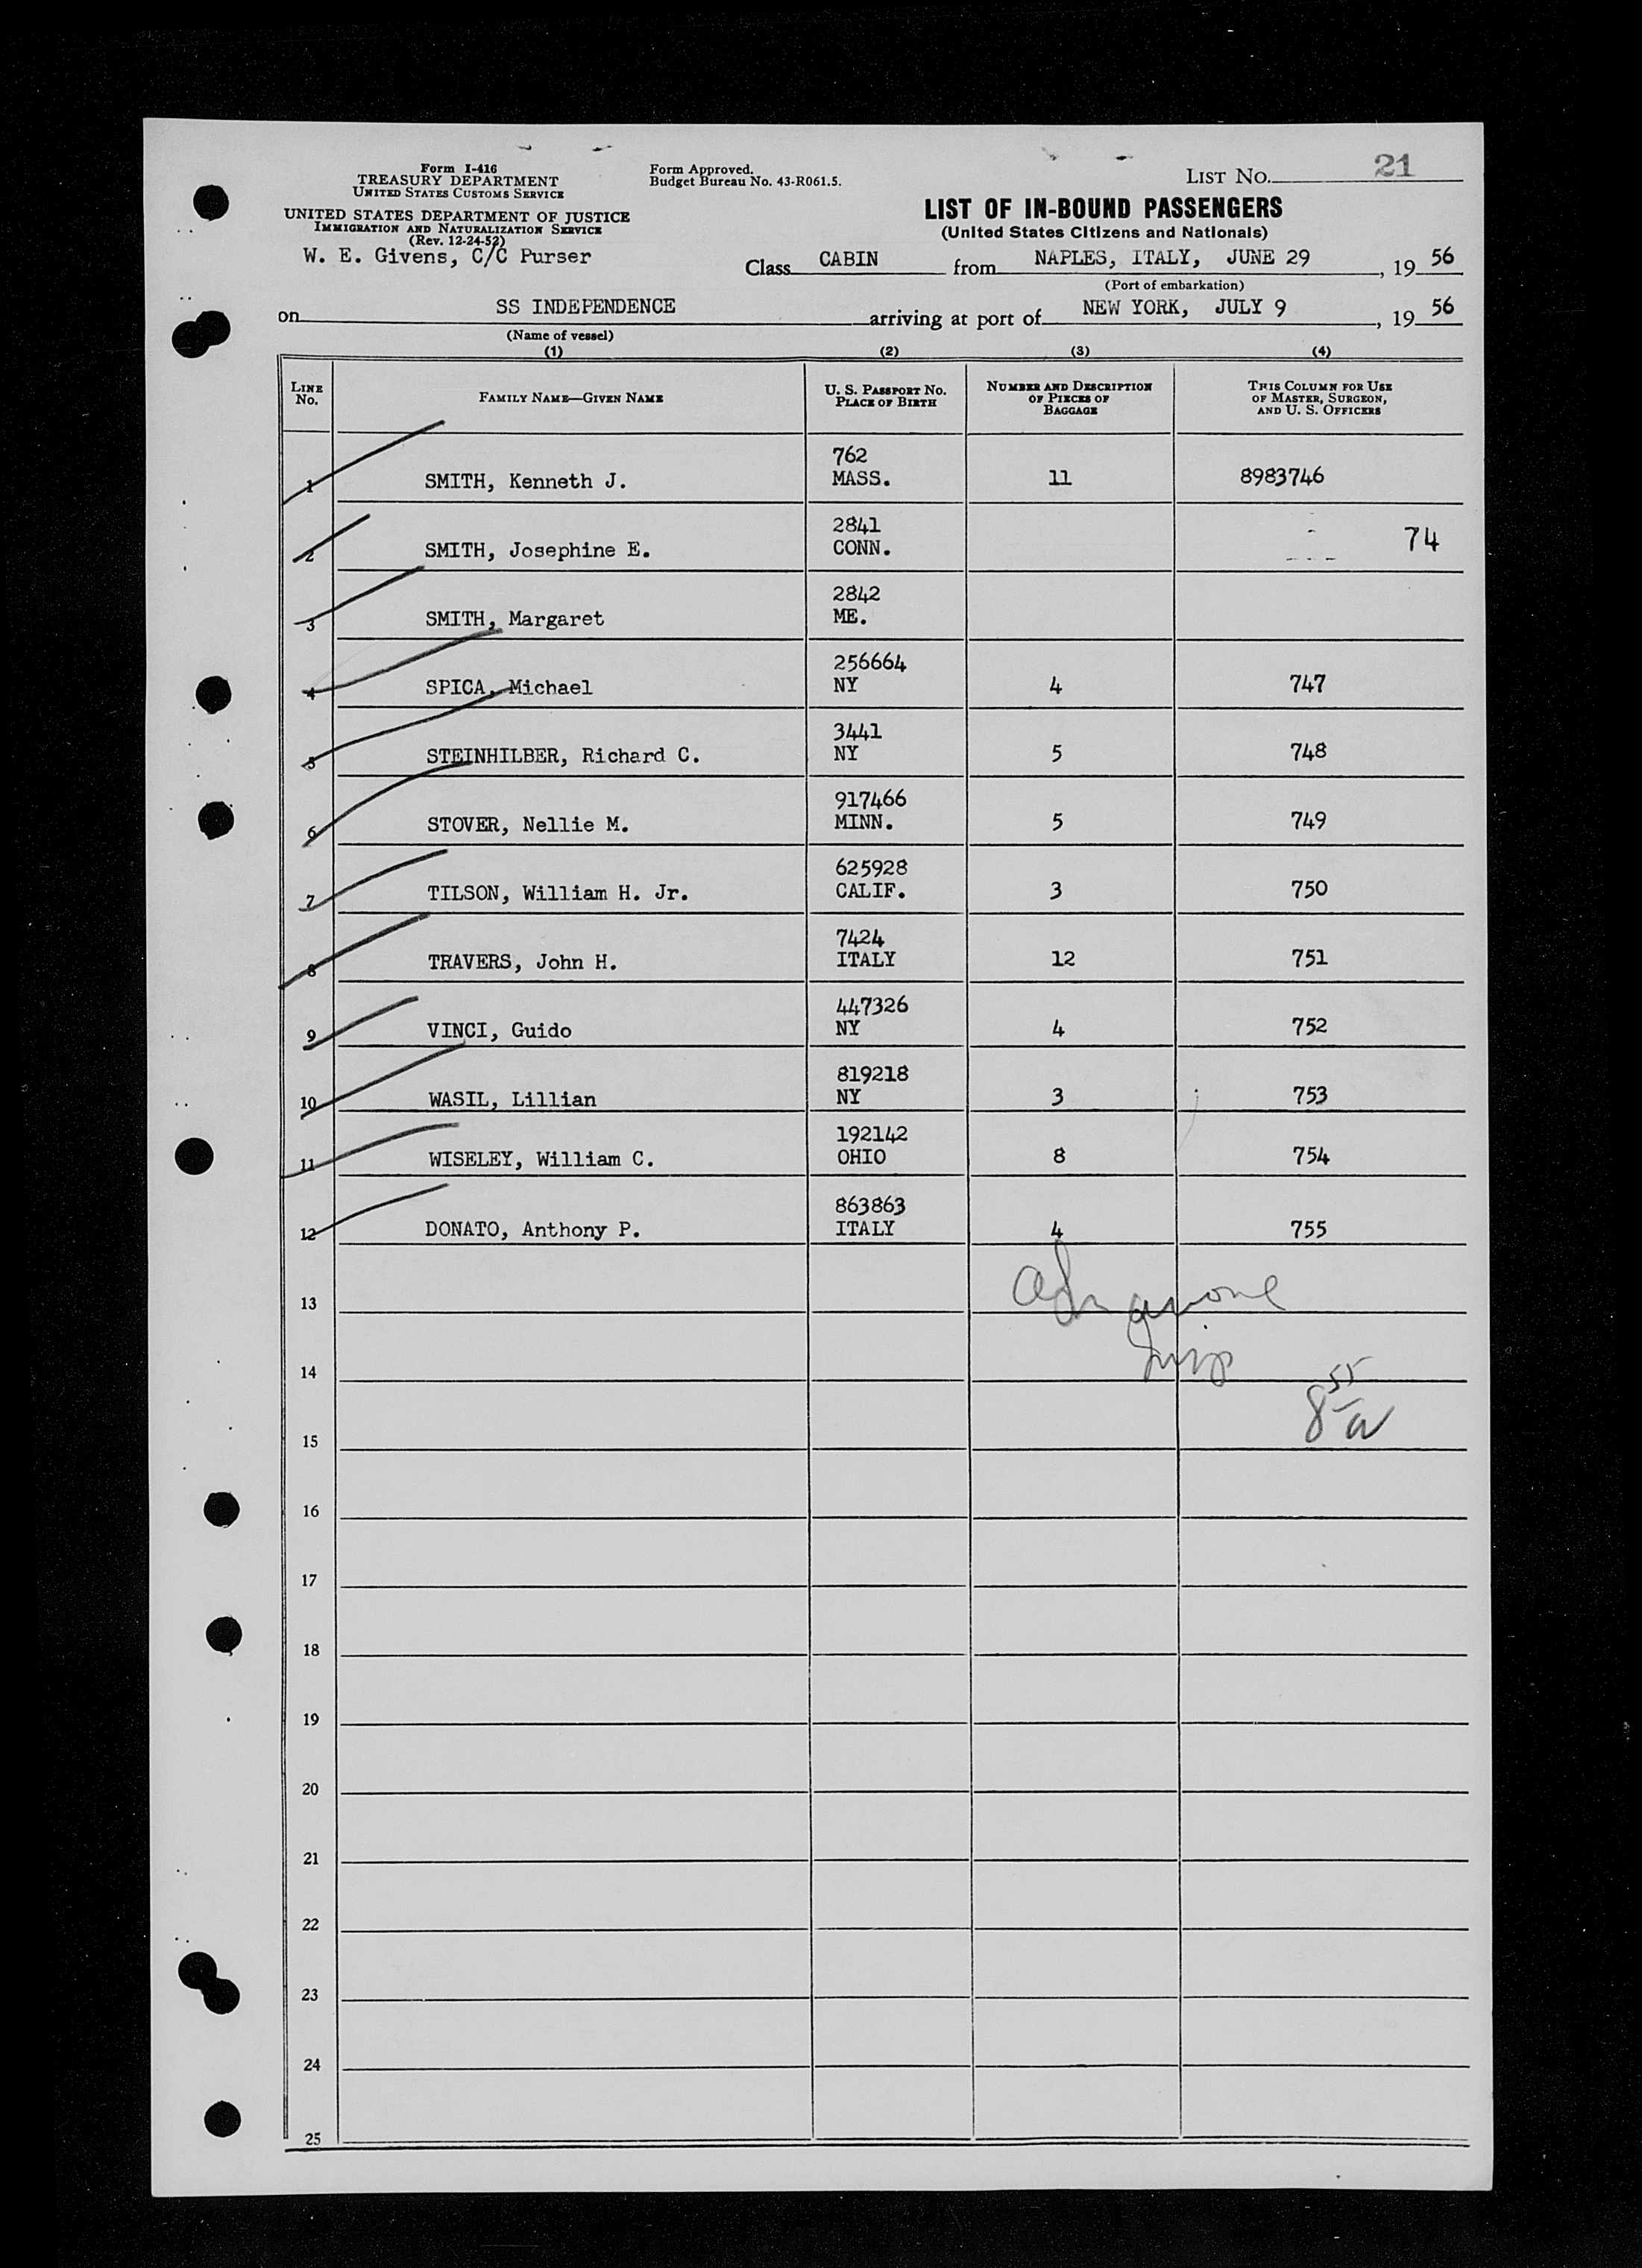 Form I-416
TREASURY DEPARTMENT
UNITED STATES CUSTOMS SERVICE
UNITED STATES DEPARTMENT OF JUSTICE
IMMIGRATION AND NATURALIZATION SERVICE
(Rev. 12-24-52)
W. E. Givens, C/C Purser
Form Approved.
Budget Bureau No. 43-R061.5.
LIST No. 21
LIST OF IN-BOUND PASSENGERS
(United States Citizens and Nationals)
Class CABIN from NAPLES, ITALY, JUNE 29, 19 56
(Port of embarkation)
on SS INDEPENDENCE arriving at port of NEW YORK, JULY 9, 19 56
(Name of vessel)
(1) (2) (3) (4)
LINE No. FAMILY NAME—GIVEN NAME U. S. PASSPORT No. PLACE OF BIRTH NUMBER AND DESCRIPTION OF PIECES OF BAGGAGE THIS COLUMN FOR USE OF MASTER, SURGEON, AND U. S. OFFICERS
762
1 SMITH, Kenneth J. MASS. 11 8983746
2841
2 SMITH, Josephine E. CONN. 74
2842
3 SMITH, Margaret ME.
256664
4 SPICA, Michael NY 4 747
3441
5 STEINHILBER, Richard C. NY 5 748
917466
6 STOVER, Nellie M. MINN. 5 749
625928
7 TILSON, William H. Jr. CALIF. 3 750
7424
8 TRAVERS, John H. ITALY 12 751
447326
9 VINCI, Guido NY 4 752
819218
10 WASIL, Lillian NY 3 753
192142
11 WISELEY, William C. OHIO 8 754
863863
12 DONATO, Anthony P. ITALY 4 755
13
14
8 55 a
15
16
17
18
19
20
21
22
23
24
25